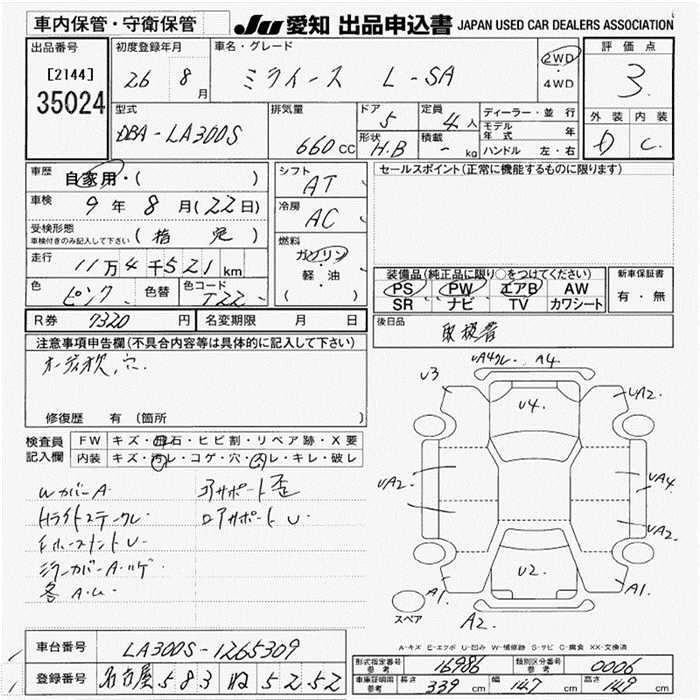 車内保管・守衛保管
JU 愛知 出品申込書 JAPAN USED CAR DEALERS ASSOCIATION
出品番号 初度登録年月 車名・グレード 評価点
[2144]
35024
26 8月 ミライース L-SA 2WD・4WD 3
型式 排気量 ドア 定員 ディーラー・並行 外装 内装
DBA-LA300S 660cc 5 4人 モデル年式 年 D C
形状 積載 ハンドル 左・右
H.B - kg
車歴 自家用・( ) シフト AT セールスポイント(正常に機能するものに限ります)
車検 9年 8月(22日) 冷房 AC
受検形態 車検付きのみ記入して下さい (指定) 燃料 ガソリン・軽・油 ( )
走行 11万4千521km
装備品(純正品に限り○をつけてください) 新車保証書
PS PW エアB AW 有・無
SR ナビ TV カワシート
色 ピンク 色替 色コード T22
R券 7320円 名変期限 月 日
後日品 取扱書
注意事項申告欄(不具合内容等は具体的に記入して下さい)
オーディオ欠,穴.
修復歴 有(箇所 )
検査員記入欄 FW キズ・飛石・ヒビ割・リペア跡・X要
内装 キズ・汚レ・コゲ・穴・凸レ・キレ・破レ
WカバーA エアサポート歪
Hライトステークレ ロアサポートU
ミラーカバーA・ハゲ
各A・U
U3 A4 UA2
U4
UA2 UA4
UA2
U2
A1 A1
スペア A2
A-キズ E-エクボ U-凹み W-補修跡 S-サビ C-腐食 XX-交換済
車台番号 LA300S-1265309
登録番号 名古屋 583 ね 5252
形式指定番号 参考 16986 類別区分番号 参考 0006
車庫証明用 参考 長さ 339cm 幅 147cm 高さ 149cm